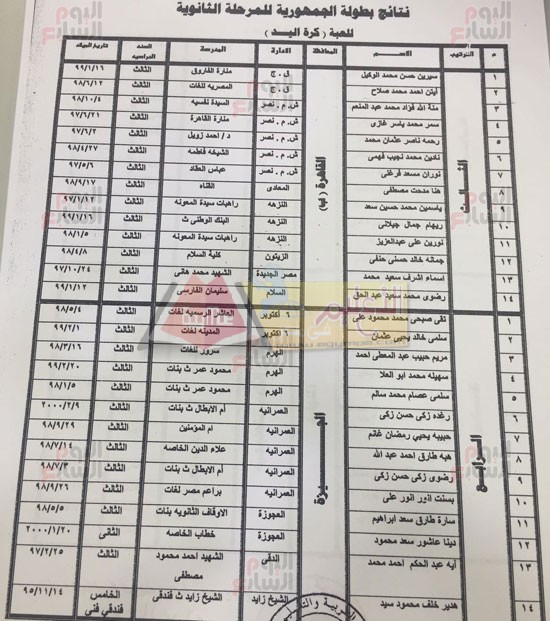 نتائج بطولة الجمهورية للمرحلة الثانوية
للعبة ( كرة اليد )
م الترتيب الاســـم المحافظة الادارة المدرسة السنه الدراسيه تاريخ الميلاد
الثـــالـــث
القاهرة (ب)
١ سيرين حسن محمد الوكيل ق . ج منارة الفاروق الثالث ٩٩/١/١٦
٢ أيتن احمد محمد صلاح ق . ج المصريه للغات الثالث ٩٨/٦/١٢
٣ منة الله فؤاد محمد عبد المنعم ش . م . نصر السيدة نفسيه الثالث ٩٨/١٠/٤
٤ سمر محمد ياسر غازى ش . م . نصر منارة القاهرة الثالث ٩٧/٦/٢١
٥ رحمه ناصر عثمان محمد ش . م . نصر د / احمد زويل الثالث ٩٧/٦/٢
٦ نادين محمد نجيب فهمى ش . م . نصر الشيخه فاطمه الثالث ٩٨/٤/٢٧
٧ نوران مسعد فرغنى ش . م . نصر عباس العقاد الثالث ٩٧/٥/٦
٨ هنا مدحت مصطفى المعادى القناه الثالث ٩٨/٩/١٧
٩ ياسمين محمد حسين سعد النزهه راهبات سيدة المعونه الثالث ٩٧/١/١٢
١٠ ريهام جمال جيلانى النزهه البنك الوطنى ث الثالث ٩٩/١/١٦
١١ نورين على عبدالعزيز النزهه راهبات سيدة المعونه الثالث ٩٨/١/٥
١٢ جمانه خالد حسنى حنفى الزيتون كلية السلام الثالث ٩٨/٤/٨
١٣ اسماء اشرف سعيد محمد مصر الجديدة الشهيد محمد هانى الثالث ٩٧/١٠/٢٤
١٤ رضوى محمد سعيد عبد الحق السلام سليمان الفارسى الثالث ٩٩/١/١٢
الـــرابـــع
الجـــيـــزة
١ تقى صبحى محمد محمود على ٦ أكتوبر العاشر الرسميه لغات الثالث ٩٨/٥/٤
٢ سلمى خالد يحيى عثمان ٦ أكتوبر المدينه لغات الثالث ٩٩/٢/١
٣ مريم حبيب عبد المعطى احمد الهرم سرور للغات الثالث ٩٨/٣/١٦
٤ سهيله محمد ابو العلا الهرم محمود عمر ث بنات الثالث ٩٩/٢/٢٠
٥ سلمى عصام محمد سالم الهرم محمود عمر ث بنات الثالث ٩٨/١/٥
٦ رغده زكى حسن زكى العمرانيه أم الابطال ث بنات الثالث ٢٠٠٠/٢/٩
٧ حبيبه يحيي رمضان غانم العمرانيه أم المؤمنين الثالث ٩٨/٩/٢٩
٨ هبه طارق احمد عبد الله العمرانيه علاء الدين الخاصه الثالث ٩٨/٧/١٤
٩ رضوى زكى حسن زكى العمرانيه أم الابطال ث بنات الثالث ٩٨/٧/٣
١٠ بسنت انور انور على العمرانيه براعم مصر لغات الثالث ٩٨/٩/٢٦
١١ سارة طارق سعد ابراهيم العجوزة الاوقاف الثانويه بنات الثالث ٩٨/٥/٥
١٢ دينا عاشور سعد محمود العجوزة خطاب الخاصه الثانى ٢٠٠٠/١/٢٠
١٣ آيه عبد الحكم احمد محمد الدقى الشهيد احمد محمود الثالث ٩٧/٢/٢٥
مصطفى
١٤ هدير خلف محمود سيد الشيخ زايد الشيخ زايد ث فندقى الخامس ٩٥/١١/١٤
فندقي فني
اليوم السابع